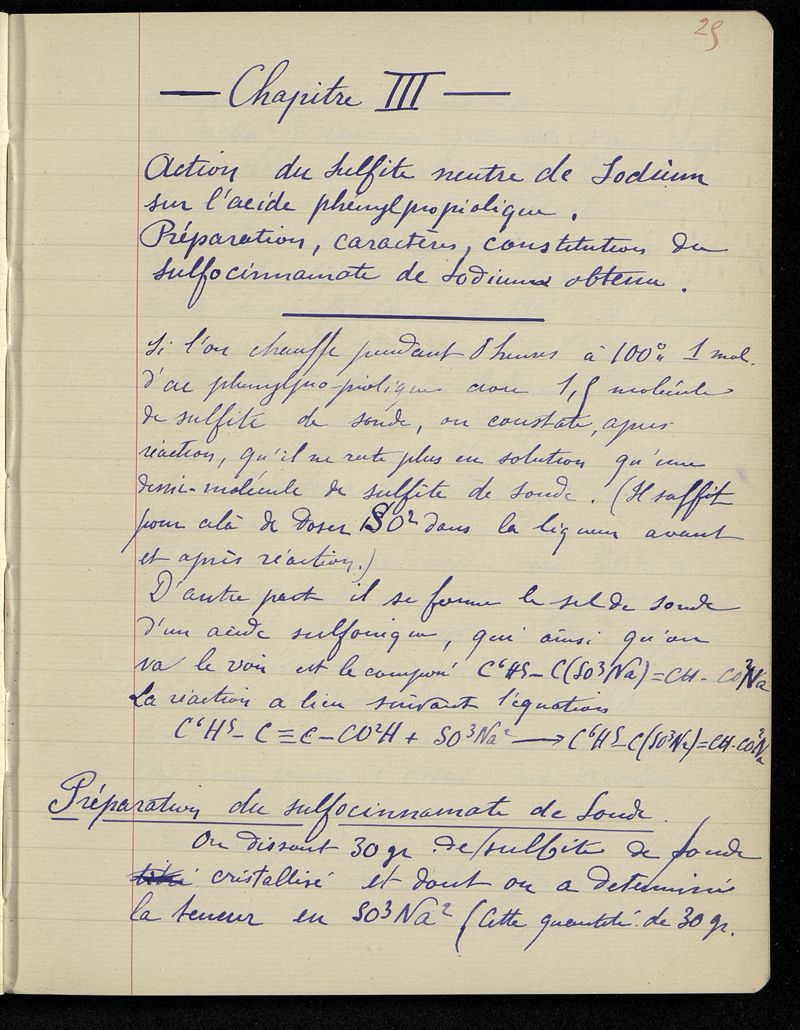 25
— Chapitre III —
Action du sulfite neutre de Sodium
sur l'acide phénylpropiolique.
Préparation, caractères, constitution du
sulfocinnamate de Sodium obtenu.
Si l'on chauffe pendant 8 heures à 100° 1 mol.
d'ac phénylpropiolique avec 1,5 molécule
de sulfite de soude, on constate, après
réaction, qu'il ne reste plus en solution qu'une
demi-molécule de sulfite de soude. (Il suffit
pour celà de doser SO² dans la liqueur avant
et après réaction.)
D'autre part il se forme le sel de soude
d'un acide sulfonique, qui ainsi qu'on
va le voir est le composé C⁶H⁵-C(SO³Na)=CH-CO²Na
La réaction a lieu suivant l'équation
C⁶H⁵-C≡C-CO²H + SO³Na² → C⁶H⁵-C(SO³Na)=CH-CO²Na
Préparation du sulfocinnamate de Soude.
On dissout 30 gr. de sulfite de soude
cristallisé et dont on a déterminé
la teneur en SO³Na² (Cette quantité de 30 gr.